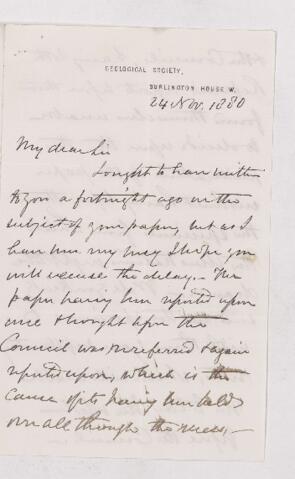 GEOLOGICAL SOCIETY,
BURLINGTON HOUSE. W.
24 Nov. 1880
My dear Sir
I ought to have written
to you a fortnight ago on the
subject of your paper, but as I
have been very busy I hope you
will excuse the delay. - The
paper having been reported upon
once & brought before the
Council was re-referred & again
reported upon, which is the
cause of its having been held
over all through the recess, -